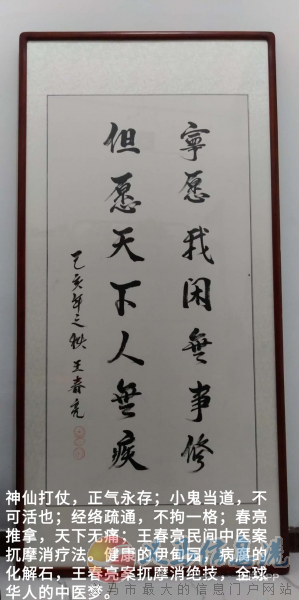 寧愿我闲無事修
但愿天下人無疾
乙亥年之秋王春亮
神仙打仗，正气永存；小鬼当道，不
可活也；经络疏通，不拘一格；春亮
推拿，天下无痛；王春亮民间中医案
扤摩消疗法。健康的伊甸园，病魔的
化解石，王春亮案扤摩消绝技，全球
华人的中医梦。
马市最大的信息门户网站